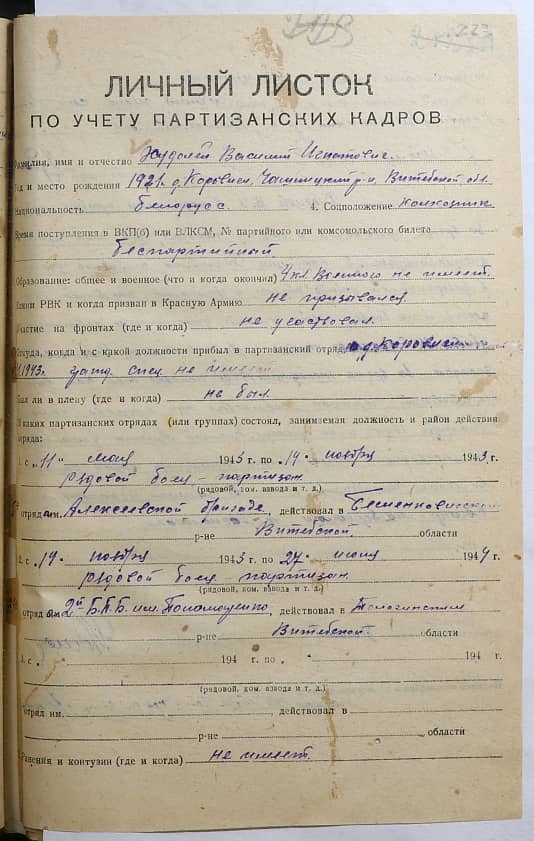 223
ЛИЧНЫЙ ЛИСТОК
ПО УЧЕТУ ПАРТИЗАНСКИХ КАДРОВ
Фамилия, имя и отчество Худолей Василий Игнатович.
Год и место рождения 1921 д. Коровищи, Чашницкий р-н, Витебской обл.
национальность белорусс. 4. Соцположение колхозник
Время поступления в ВКП(б) или ВЛКСМ, № партийного или комсомольского билета
беспартийный.
Образование: общее и военное (что и когда окончил) 4 кл. Военного не имеет.
Каким РВК и когда призван в Красную Армию не призывался
Участие на фронтах (где и когда) не участвовал.
Откуда, когда и с какой должности прибыл в партизанский отряд д. Коровищи
1943г. гражд. спец. не имеет
Был ли в плену (где и когда) не был.
В каких партизанских отрядах (или группах) состоял, занимаемая должность и район действия
отряда:
1. с „11" мая 1943 г. по „19" ноября 1943 г.
рядовой боец - партизан.
(рядовой, ком. взвода и т. д.)
отряд им. Алексеевской бригаде, действовал в Бешенковичском
р-не Витебской. области
2. с „19" ноября 1943 г. по „27" июня 1944 г.
рядовой боец - партизан.
(рядовой, ком. взвода и т. д.)
отряд 2й Б.П.Б. им. Пономаренко, действовал в Толочинском
р-не Витебской. области
3. с „ " 194 г. по „ " 194 г.
(рядовой, ком. взвода и т. д.)
отряд им. действовал в
р-не области
Ранения и контузии (где и когда) не имеет.